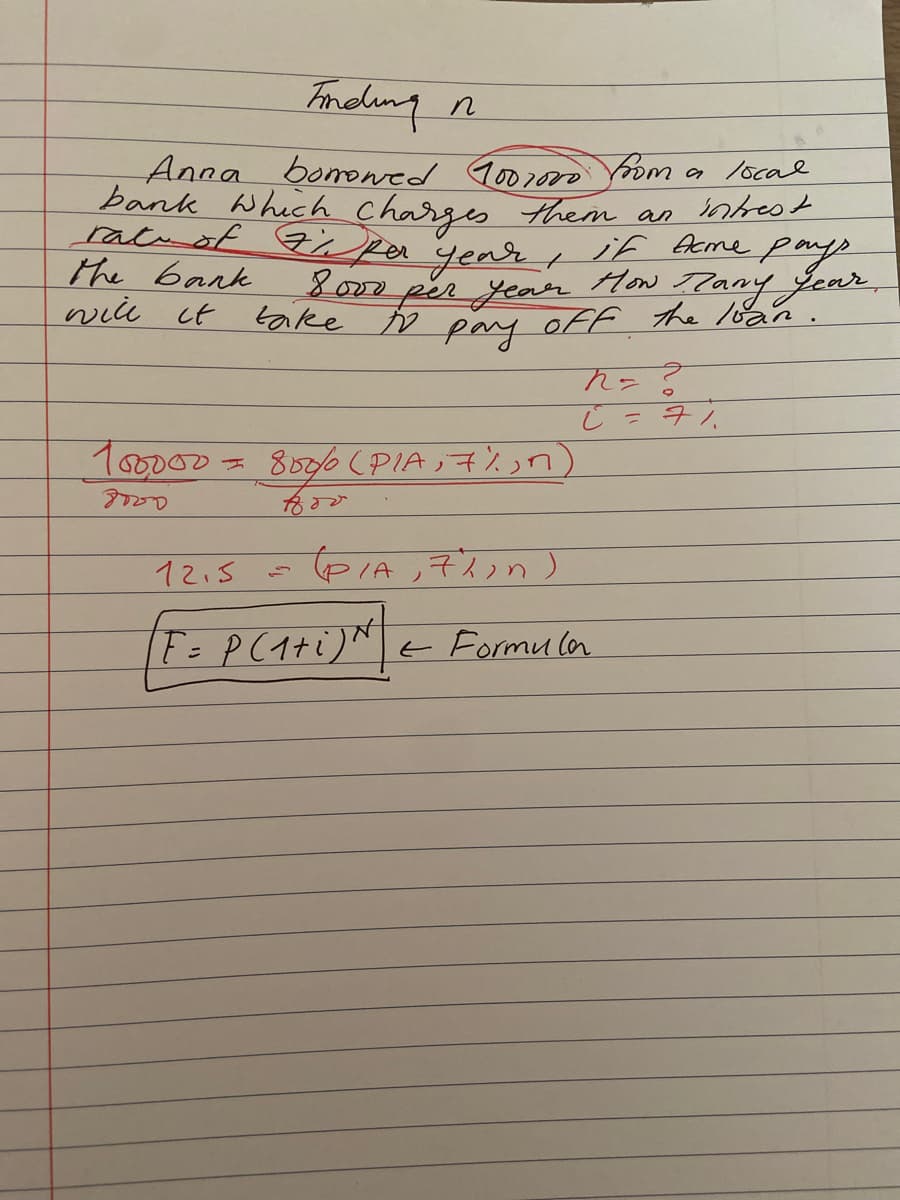 Finding n
Anna borrowed 100,000 from a local
bank which charges them an intrest
rate of 7% per year, if Acme pays
the bank 8000 per year How many year
will it take to pay off the loan.
n = ?
i = 7%
100,000 = 8000 (P/A, 7%, n)
8000 800
12.5 = (P/A, 7%, n)
F = P(1+i)^N ← Formula